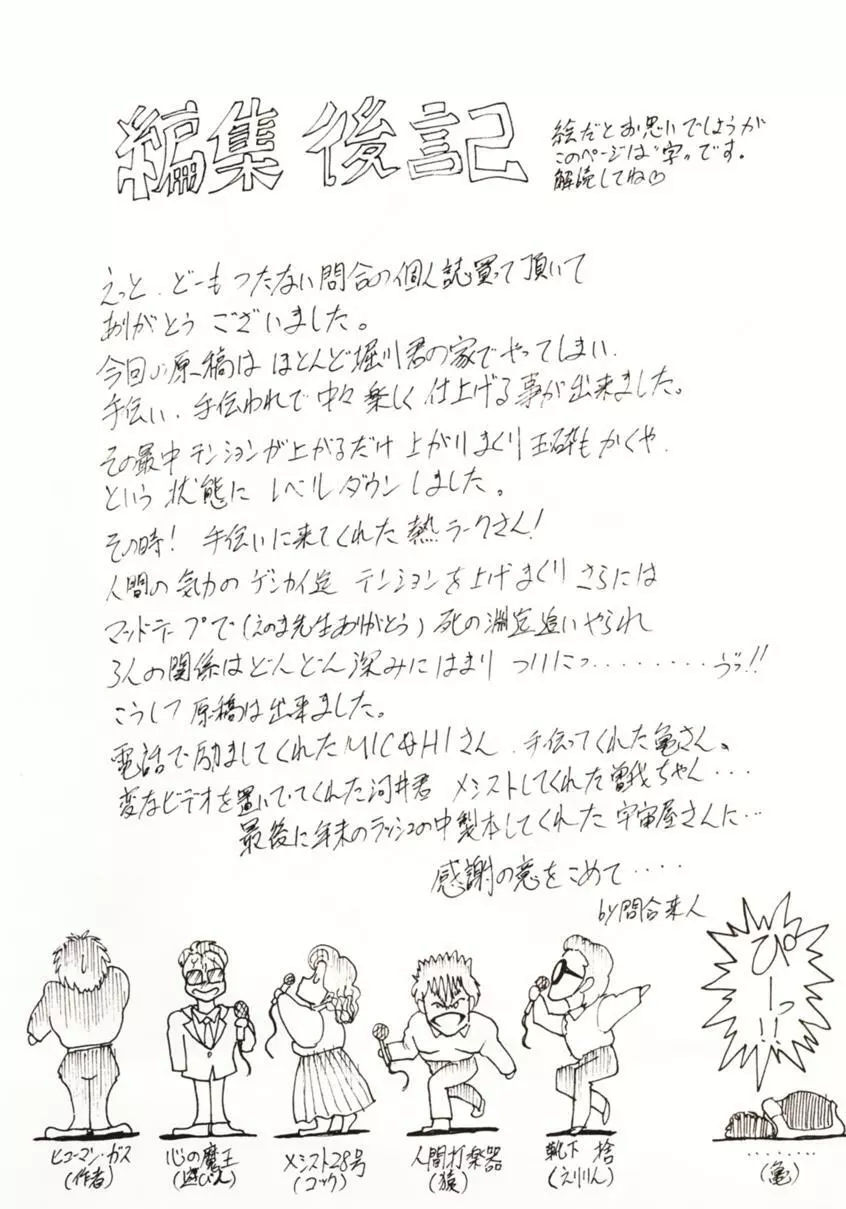 編集後記
絵だとお思いでしょうが
このページは"字"です。
解読してね♡
えっと、どーもつたない問合の個人誌買って頂いて
ありがとうございました。
今回の原稿はほとんど堀川君の家でやってしまい、
手伝い、手伝われで中々楽しく仕上げる事が出来ました。
その最中テンションが上がるだけ上がりまくり玉砕もかくや、
という状態にレベルダウンしました。
その時！手伝いに来てくれた熱ラークさん！
人間の気力のゲンカイ迄テンションを上げまくりさらには
マッドテープで(えのま先生ありがとう)死の淵迄追いやられ
3人の関係はどんどん深みにはまりついにっ・・・・・・・・・ゔっ!!
こうして原稿は出来ました。
電話で励ましてくれたMICHIさん、手伝ってくれた亀さん、
変なビデオを置いてってくれた河井君 メシストしてくれた曽我ちゃん・・・
最後に年末のラッシュの中製本してくれた宇宙屋さんに…
感謝の意をこめて・・・・
by問合来人
ぴーっ!!
ヒューマン・ガス
(作者)
心の魔王
(遊びん)
メシスト28号
(コック)
人間打楽器
(猿)
靴下 捨
(えりりん)
・・・・・・・・・
(亀)